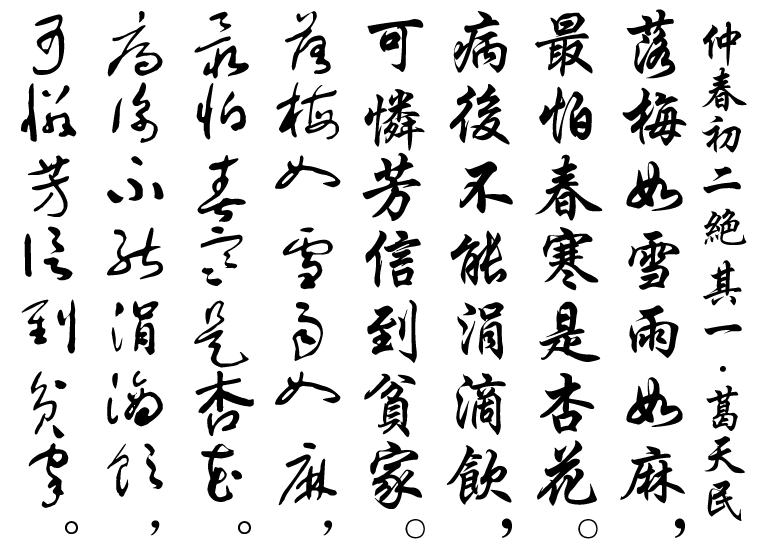 仲春初二絶其一·葛天民
落梅如雪雨如麻，
最怕春寒是杏花。
病後不能涓滴飲，
可憐芳信到貧家。
落梅如雪雨如麻，
最怕春寒是杏花。
病後不能涓滴飲，
可憐芳信到貧家。